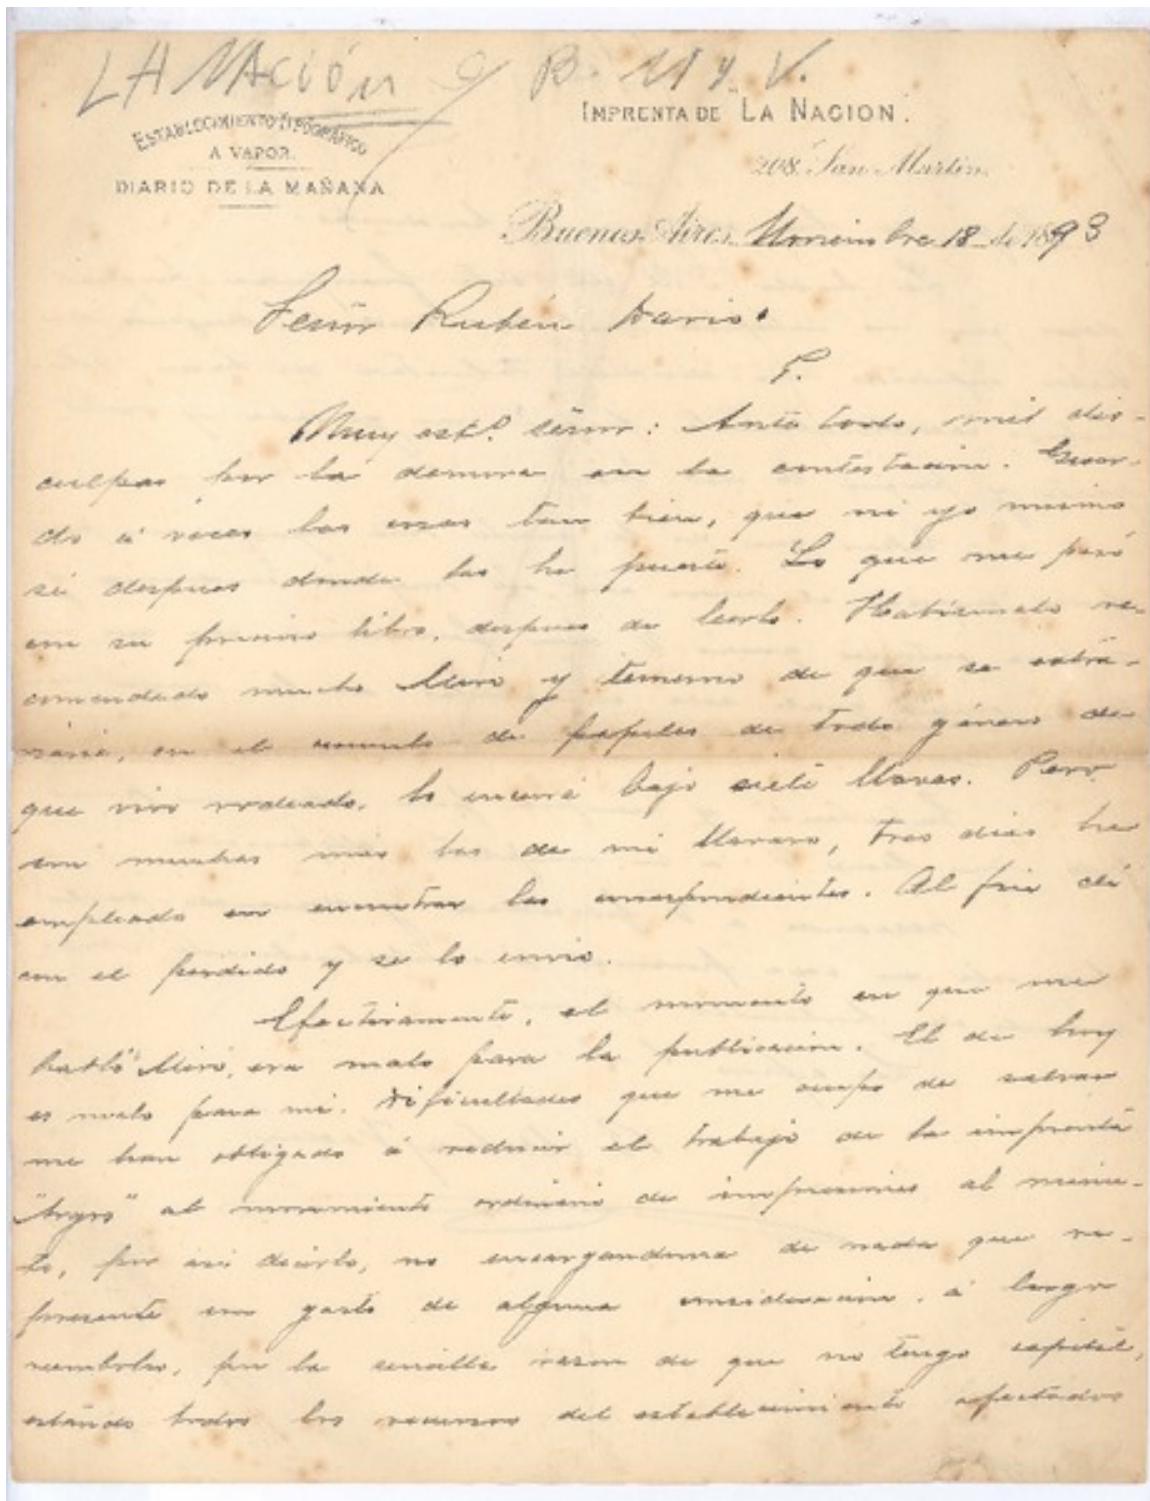 LA NACIÓN
B. M y V.
ESTABLECIMIENTO TIPOGRÁFICO
A VAPOR.
DIARIO DE LA MAÑANA
IMPRENTA DE LA NACION.
208. San Martin.
Buenos Aires, Noviembre 18 de 1893
Señor Rubén Dario.
P.
Muy est.º señor: Ante todo, mil dis-
culpas por la demora en la contestacion. Guar-
do á veces las cosas tan bien, que ni yo mismo
sé despues donde las he puesto. Lo que me pasó
con su precioso libro, despues de leerlo. Habíamelo re-
comendado mucho Miró y temeroso de que se extra-
viára, en el cúmulo de papeles de todo género de
que vivo rodeado, lo encerré bajo siete llaves. Pero
son muchas mas las de mi llavero, tres dias he
empleado en encontrar las correspondientes. Al fin dí
con el perdido y se lo envio.
Efectivamente, el momento en que me
habló Miró, era malo para la publicacion. El de hoy
es malo para mí. Dificultades que me ocupo de salvar
me han obligado á reducir el trabajo de la imprenta
"Argos" al movimiento ordinario de impresiones al minu-
to, por asi decirlo, no encargandome de nada que re-
presente un gasto de alguna consideracion, á largo
reembolso, por la sencilla razon de que no tengo capital,
estando todos los recursos del establecimiento afectados